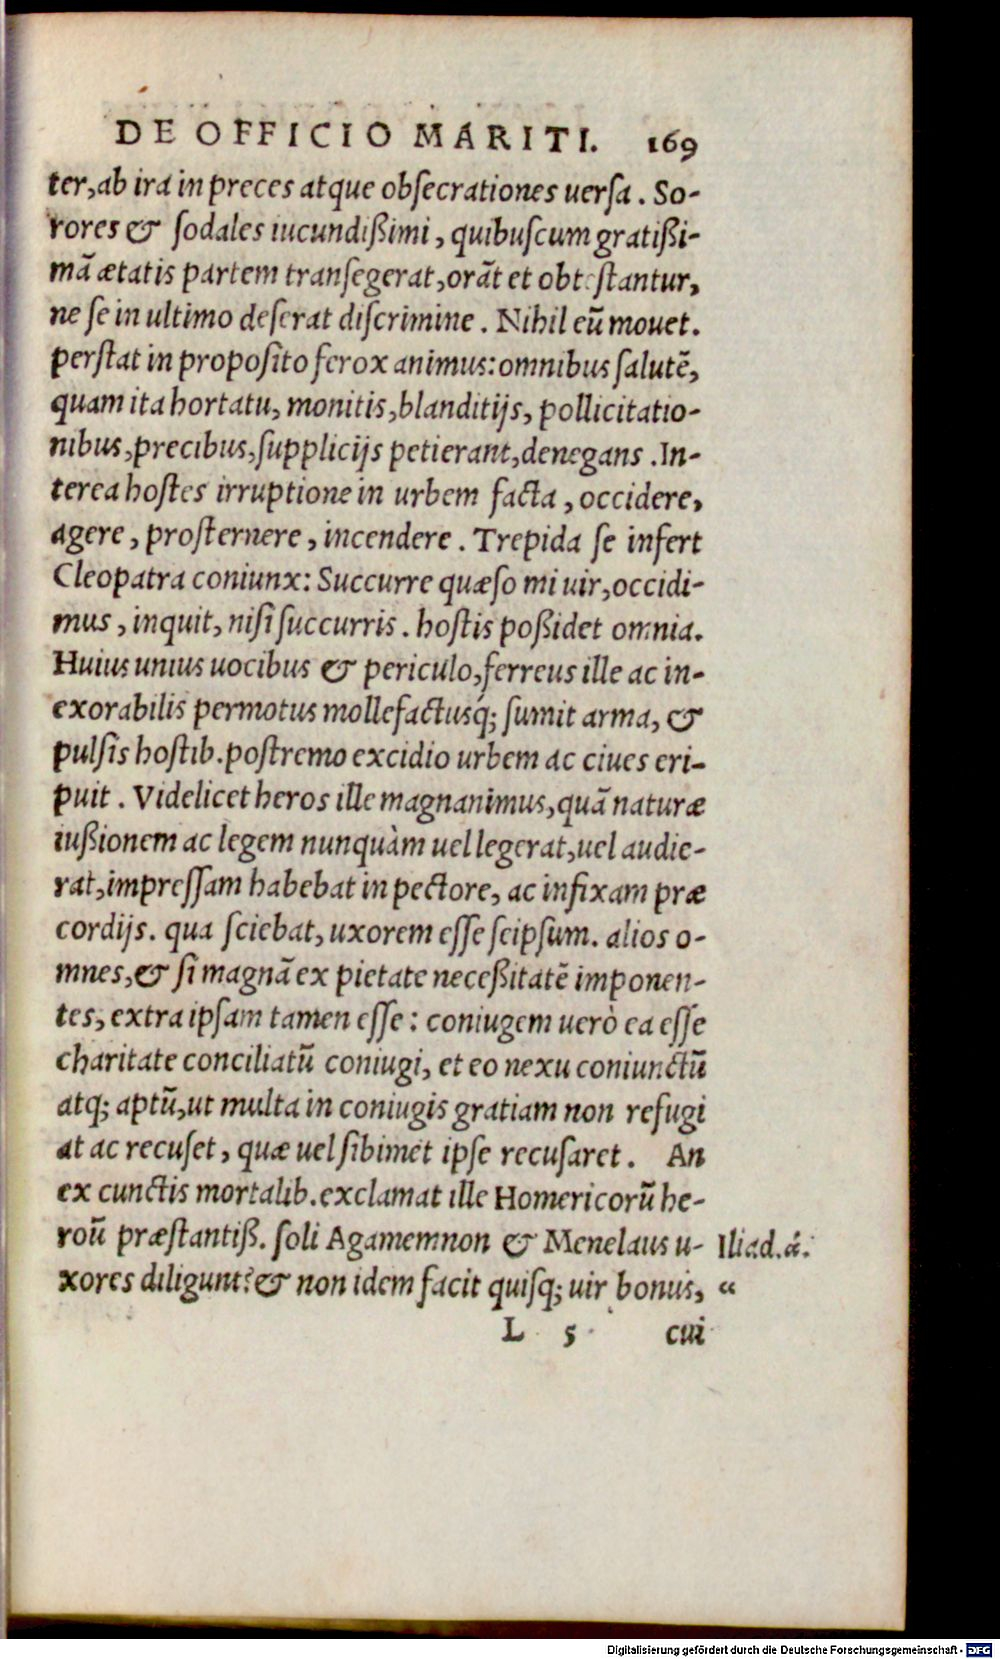 DE OFFICIO MARITI. 169
ter, ab ira in preces atque obsecrationes uersa. So-
rores & sodales iucundißimi, quibuscum gratißi-
mā ætatis partem transegerat, orāt et obtestantur,
ne se in ultimo deserat discrimine. Nihil eū mouet.
perstat in proposito ferox animus: omnibus salutē,
quam ita hortatu, monitis, blanditijs, pollicitatio-
nibus, precibus, supplicijs petierant, denegans. In-
terea hostes irruptione in urbem facta, occidere,
agere, prosternere, incendere. Trepida se infert
Cleopatra coniunx: Succurre quæso mi uir, occidi-
mus, inquit, nisi succurris. hostis poßidet omnia.
Huius unius uocibus & periculo, ferreus ille ac in-
exorabilis permotus mollefactusq́; sumit arma, &
pulsis hostib. postremo excidio urbem ac ciues eri-
puit. Videlicet heros ille magnanimus, quā naturæ
iußionem ac legem nunquàm uel legerat, uel audie-
rat, impressam habebat in pectore, ac infixam præ
cordijs. qua sciebat, uxorem esse seipsum. alios o-
mnes, & si magnā ex pietate neceßitatē imponen-
tes, extra ipsam tamen esse: coniugem uerò ea esse
charitate conciliatū coniugi, et eo nexu coniunctū
atq; aptū, ut multa in coniugis gratiam non refugi
at ac recuset, quæ uel sibimet ipse recusaret. An
ex cunctis mortalib. exclamat ille Homericorū he-
roū præstantiß. soli Agamemnon & Menelaus u-
xores diligunt? & non idem facit quisq; uir bonus,
Iliad.ά.
“
L 5 cui
Digitalisierung gefördert durch die Deutsche Forschungsgemeinschaft - DFG